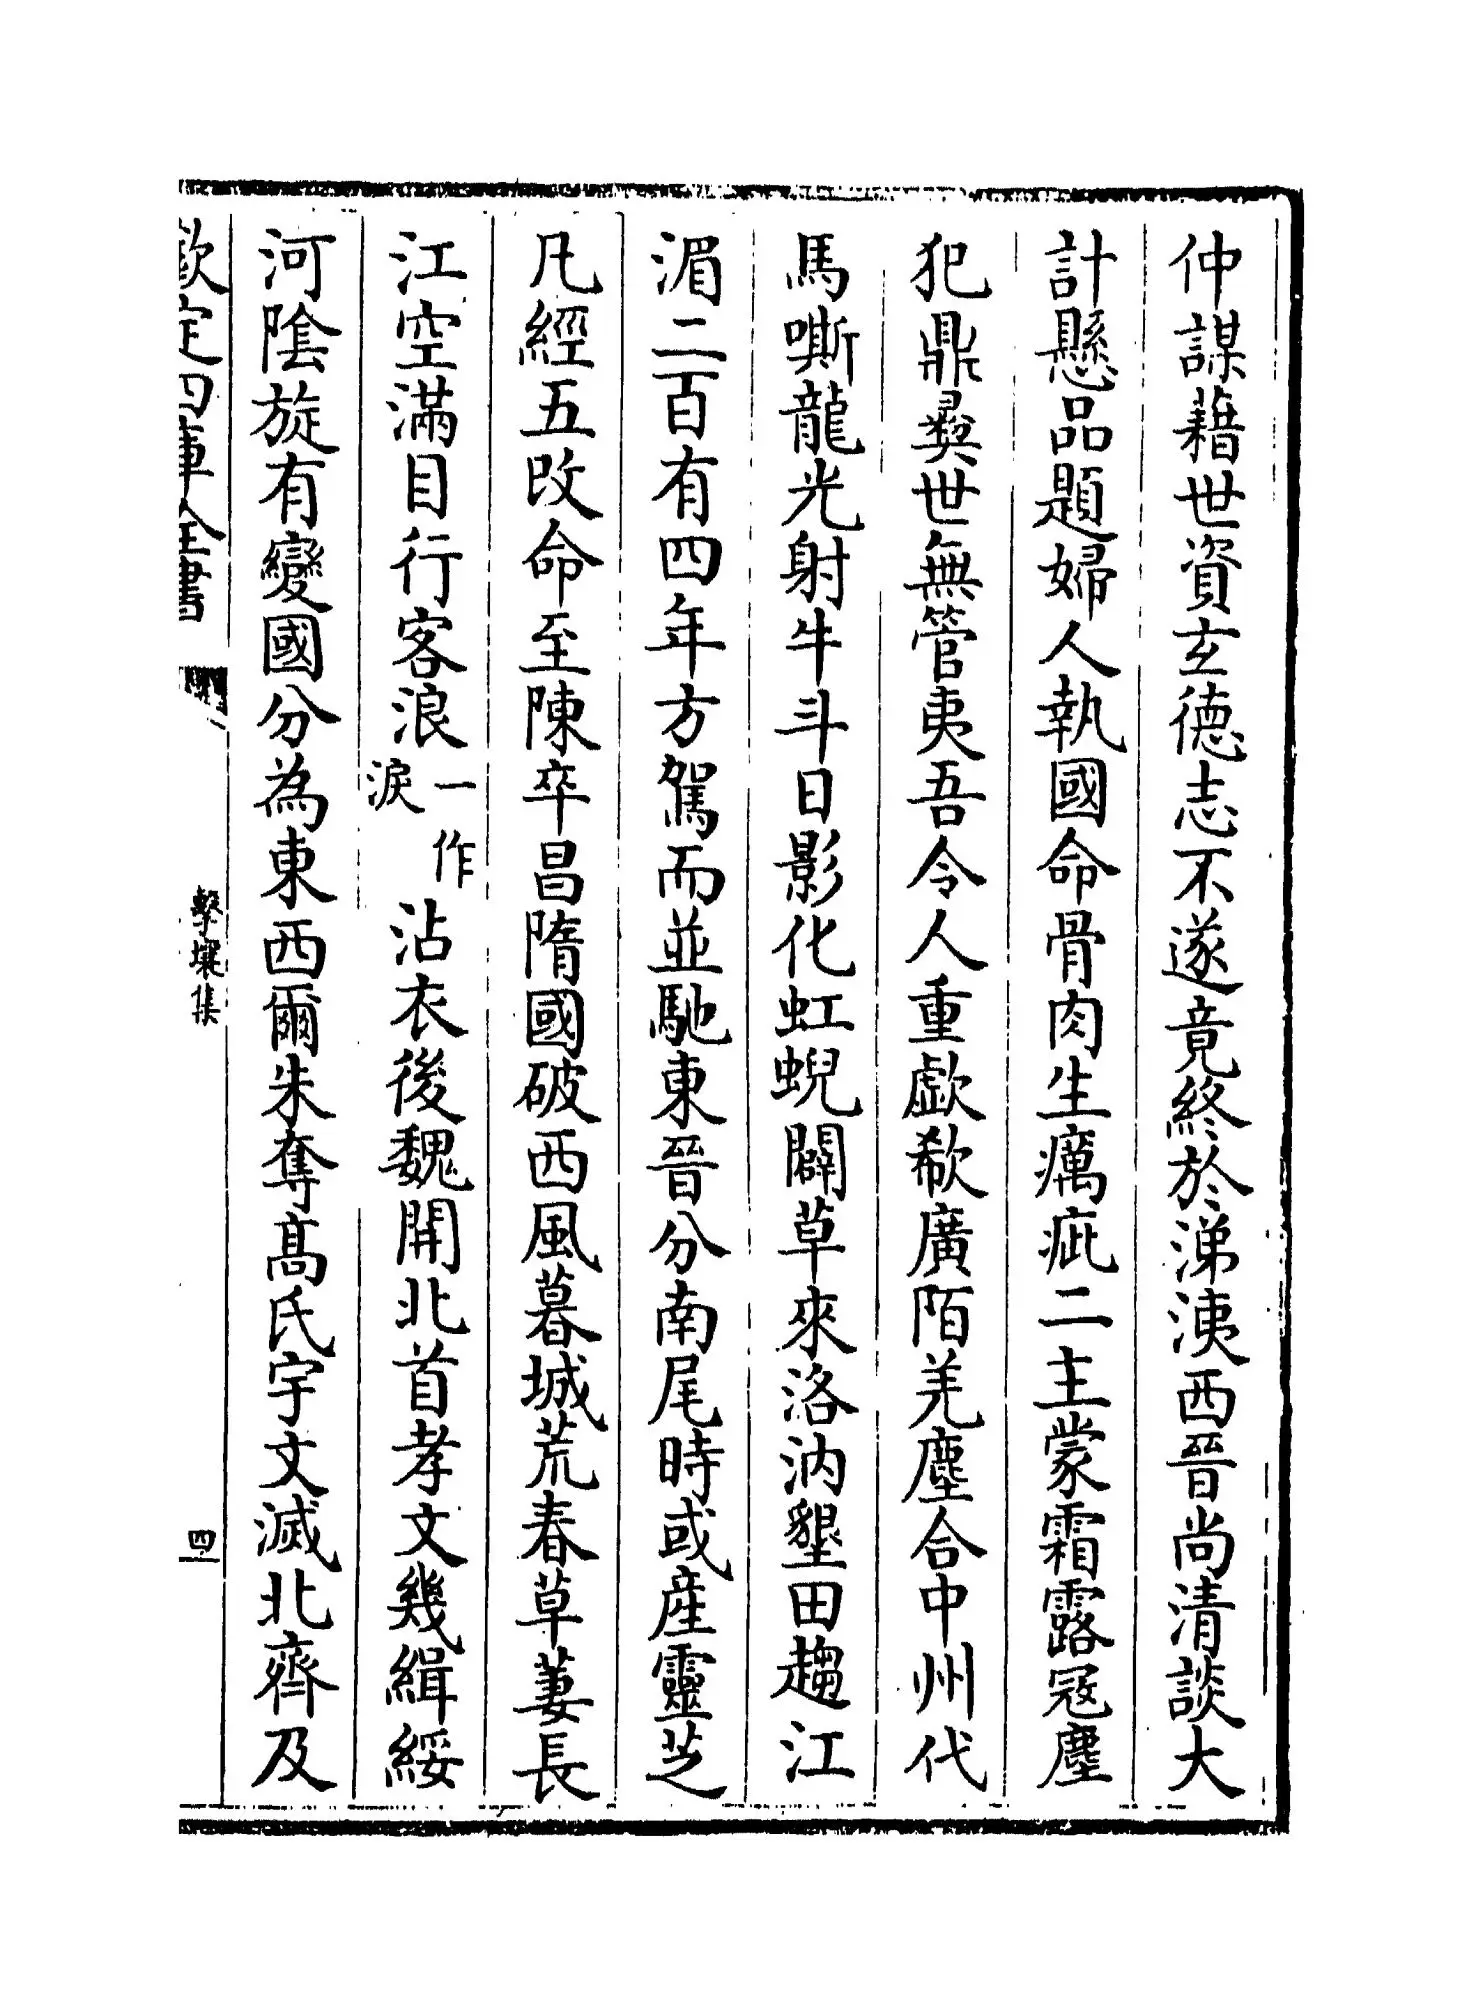 仲謀藉世資玄德志不遂竟終於涕洟西晉尚清談大
計懸品題婦人執國命骨肉生癘疵二主蒙霜露冦塵
犯鼎彞世無管夷吾令人重歔欷廣陌羌塵合中州代
馬嘶龍光射牛斗日影化虹蜺闢草來洛汭墾田趨江
湄二百有四年方駕而並馳東晉分南尾時或產靈芝
凡經五改命至陳卒昌隋國破西風暮城荒春草萋長
江空滿目行客浪一作淚沾衣後魏開北首孝文幾緝綏
河陰旋有變國分為東西爾朱奪高氏宇文滅北齊及
欽定四庫全書
擊壤集
四